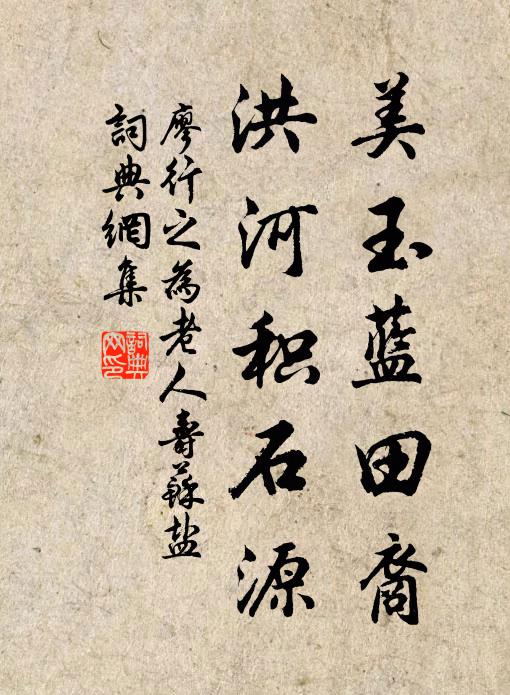 美玉藍田裔
洪河积石源
廖行之為老人壽蘇盐
詞典網集
詞典网印